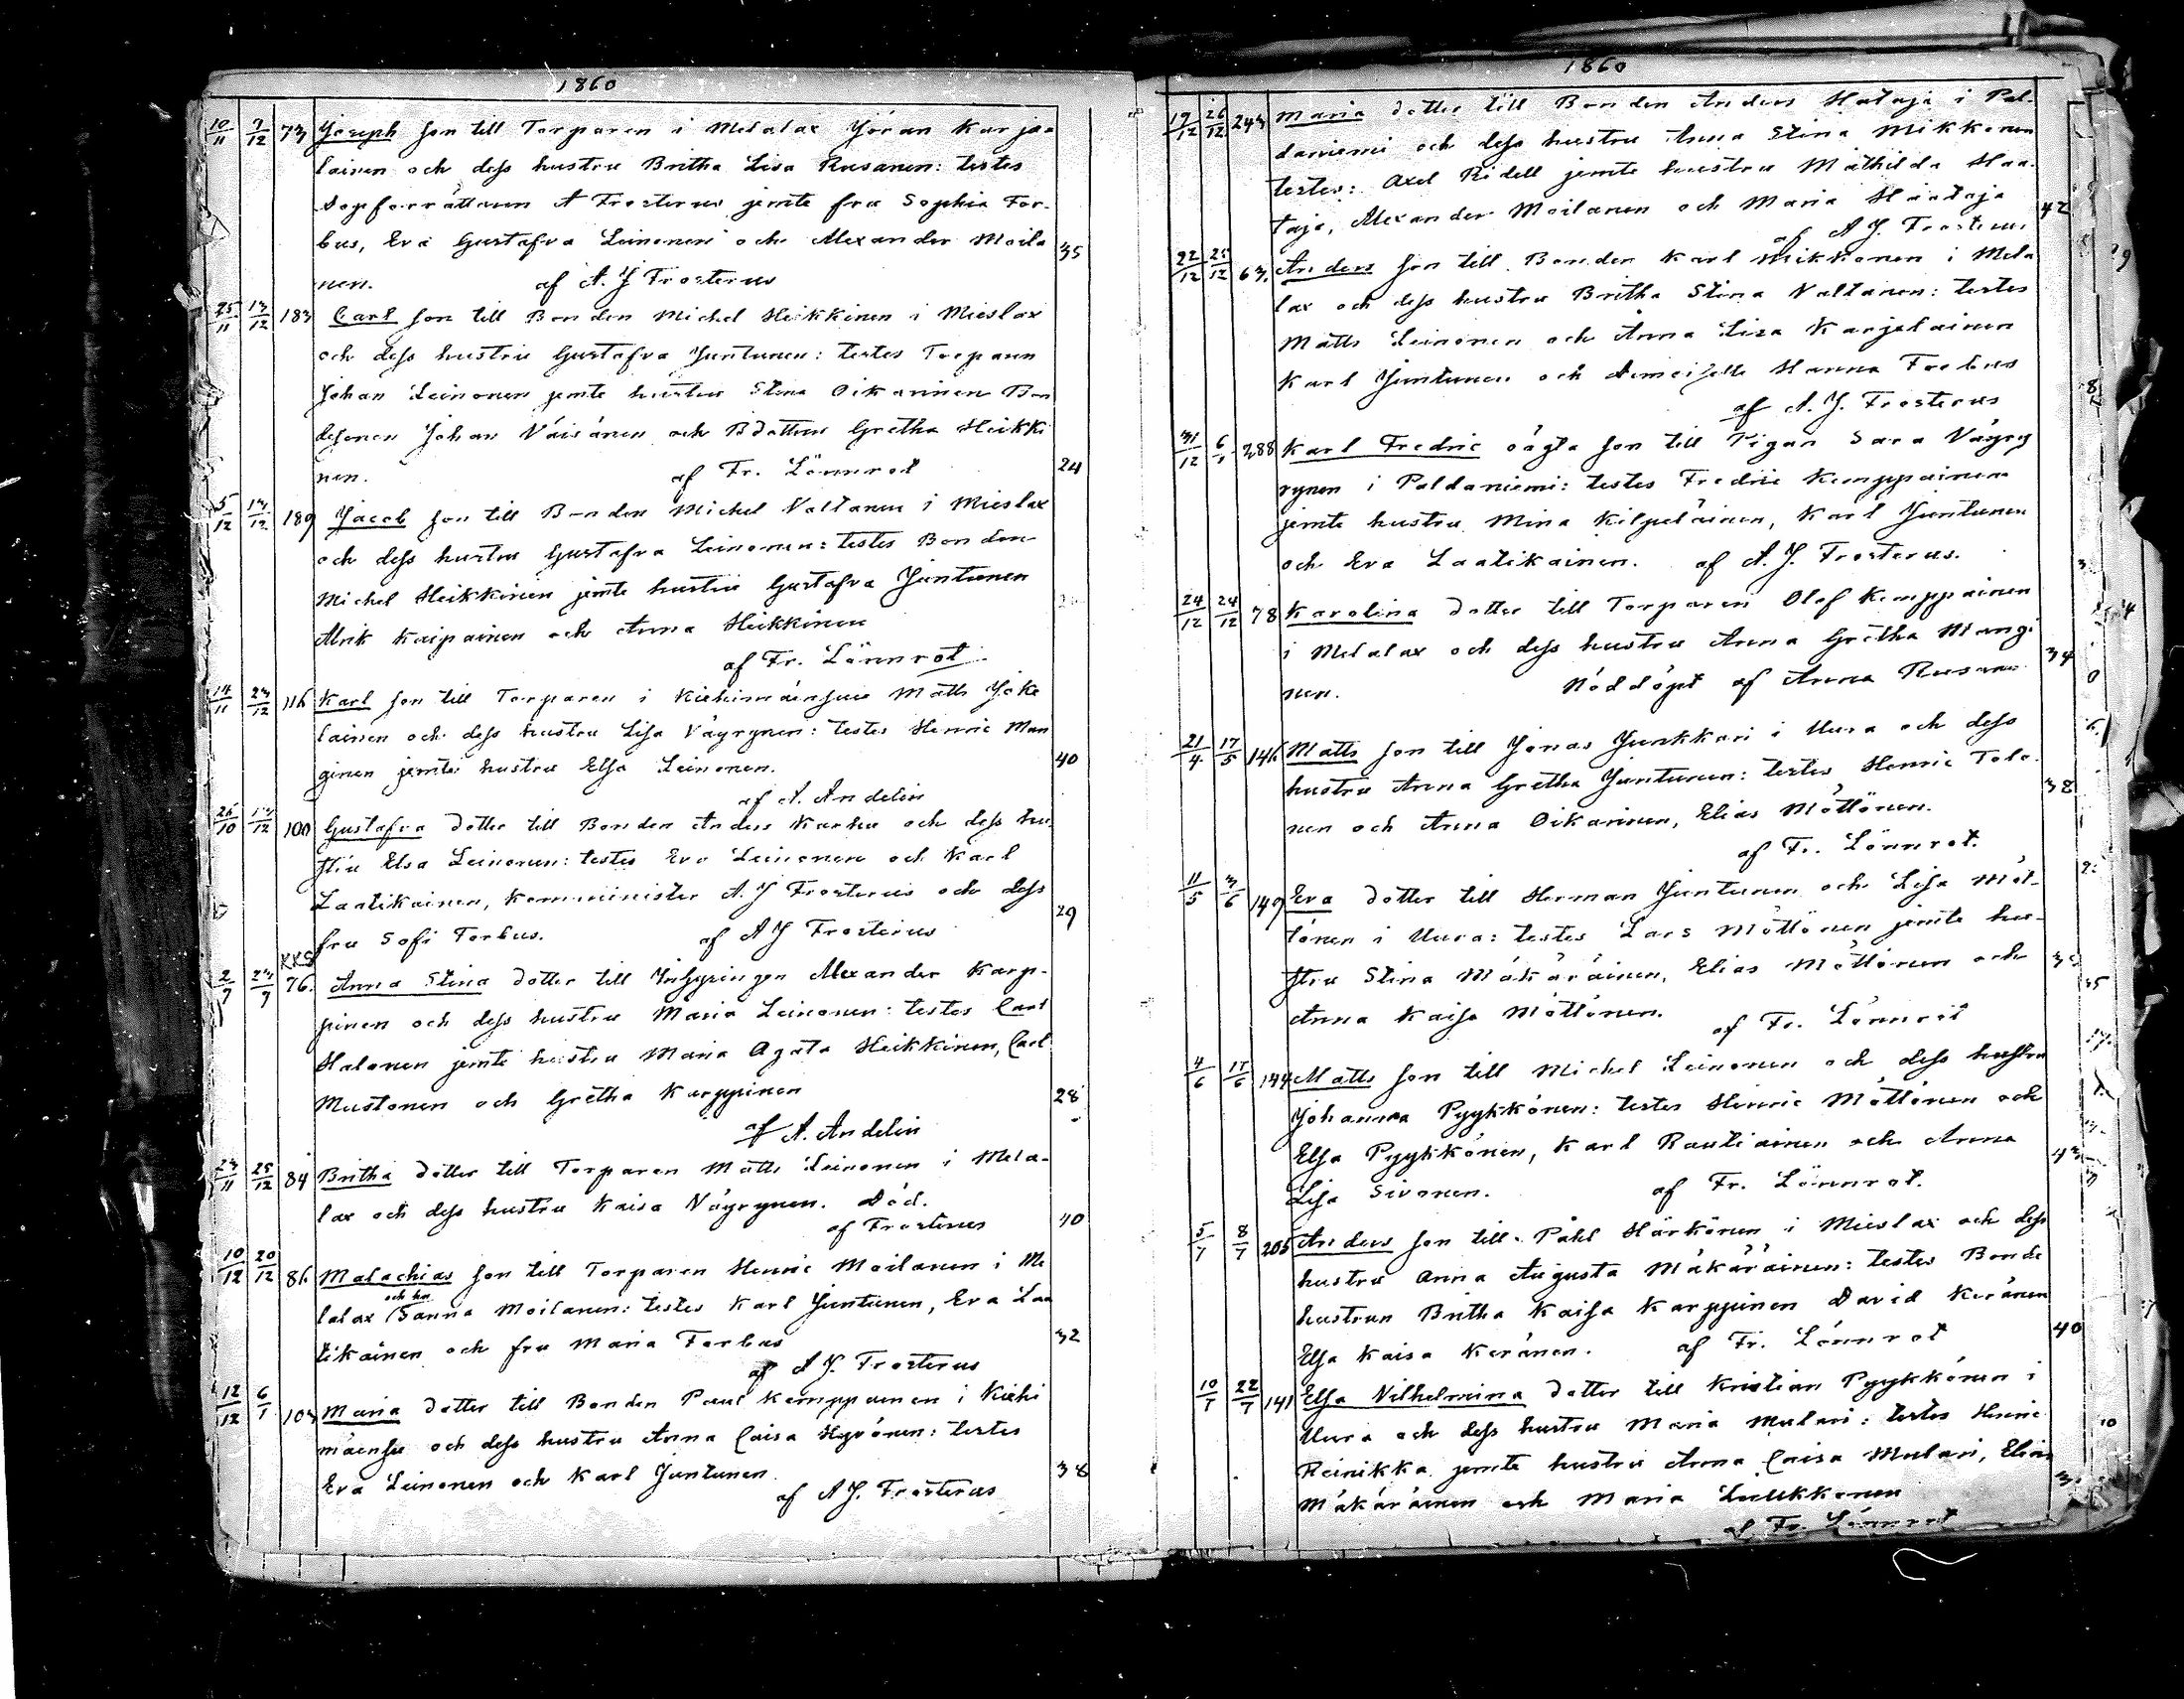 1860
10/11 7/12 73 Joseph son till Torparen i Melalax Jöran Karja-
lainen och dess hustru Britha Lisa Rusanen: testes
Dopförrättaren A Frosterus jemte fru Sophia For-
bus, Eva Gustafva Leinonen och Alexander Moila 35
nen. af A. J Frosterus
25/11 13/12 183 Carl son till Bonden Michel Heikkinen i Mieslax
och dess hustru Gustafva Juntunen: testes Torparen
Johan Leinonen jemte hustru Stina Oikarinen Bon
desonen Johan Väisänen och Bdottren Gretha Heikki
nen. af Fr. Lönnrot 24
5/12 13/12 189 Jacob son till Bonden Michel Valtanen i Mieslax
och dess hustru Gustafva Leinonen: testes Bonden
Michel Heikkinen jemte hustru Gustafva Juntunen
Ulrik Kaipainen och Anna Heikkinen
af Fr. Lönnrot.
14/11 23/12 116 Karl son till Torparen i Kiehimäensuu Matts Joke
lainen och dess hustru Lisa Väyrynen: testes Henric Man
ginen jemte hustru Elsa Leinonen. 40
af A. Andelin
26/10 13/12 100 Gustafva dotter till Bonden Anders Karhu och dess hu-
stru Elsa Leinonen: testes Eva Leinonen och Karl
Laatikainen, Komminister A. J Frosterus och dess
fru Sofi Forbus. af A J Frosterus 29
KKS
2/7 23/7 76. Anna Stina dotter till Inhysingen Alexander Karp-
pinen och dess hustru Maria Leinonen: testes Carl
Halonen jemte hustru Maria Agata Heikkinen, Carl
Mustonen och Gretha Karppinen 28
af A. Andelin
23/11 25/12 84 Britha dotter till Torparen Matts Leinonen i Mela-
lax och dess hustru Kaisa Väyrynen. Död.
af Frosterus 40
10/12 20/12 86 Malachias son till Torparen Henric Moilanen i Me
lalax och hu Sanna Moilanen: testes Karl Juntunen, Eva Laa
tikainen och fru Maria Forbus 32
af A J. Frosterus
12/12 6/1 103 Maria dotter till Bonden Paul Kemppainen i Kiehi
mäensu och dess hustru Anna Caisa Hyvönen: testes
Eva Leinonen och Karl Juntunen 38
af A J. Frosterus
1860
19/12 26/12 243 Maria dotter till Bonden Anders Hataja i Pal-
daniemi och dess hustru Anna Stina Mikkonen
testes: Axel Ridell jemte hustru Mathilda Haa-
taja, Alexander Moilanen och Maria Haataja 42
af A J. Frosterus.
22/12 25/12 63. Anders son till Bonden Karl Mikkonen i Mela
lax och dess hustru Britha Stina Valtanen: testes
Matts Leinonen och Anna Lisa Karjalainen
Karl Juntunen och demoiselle Hanna Forbus
af A. J. Frosterus
31/12 6/1 288 Karl Fredric oägta son till Pigan Sara Väyry
rynen i Paldaniemi: testes Fredric Kemppainen
jemte hustru Mina Kilpeläinen, Karl Juntunen
och Eva Laatikainen. af A. J. Frosterus.
24/12 24/12 78 Karolina dotter till Torparen Olof Kemppainen
i Melalax och dess hustru Anna Gretha Mangi
nen. Nöddöpt af Anna Rusanen 34
21/4 17/5 146 Matts son till Jonas Junkkari i Uura och dess
hustru Anna Gretha Juntunen: testes Henric Tolo- 38
nen och Anna Oikarinen, Elias Möttönen.
af Fr. Lönnrot.
11/5 3/6 149 Eva dotter till Herman Juntunen och Lisa Möt-
tönen i Uura: testes Lars Möttönen jemte hu-
stru Stina Mäkäräinen, Elias Möttönen och
Anna Kaisa Möttönen. af Fr. Lönnrot
4/6 17/6 144 Matts son till Michel Leinonen och dess hustru
Johanna Pyykkönen: testes Henric Möttönen och
Elsa Pyykkönen, Karl Rautiainen och Anna
Lisa Sivonen. af Fr. Lönnrot.
5/7 8/7 205 Anders son till Påhl Härkönen i Mieslax och dess
hustru Anna Augusta Mäkäräinen: testes Bonde
hustrun Britha Kaisa Karppinen David Keränen
Elsa Kaisa Keränen. af Fr. Lönnrot 40
10/7 22/7 141 Elsa Vilhelmina dotter till Kristian Pyykkönen i
Uura och dess hustru Maria Mulari: testes Henric
Reinikka jemte hustru Anna Caisa Mulari, Elias
Mäkäräinen och Maria Luukkonen
af Fr. Lönnrot